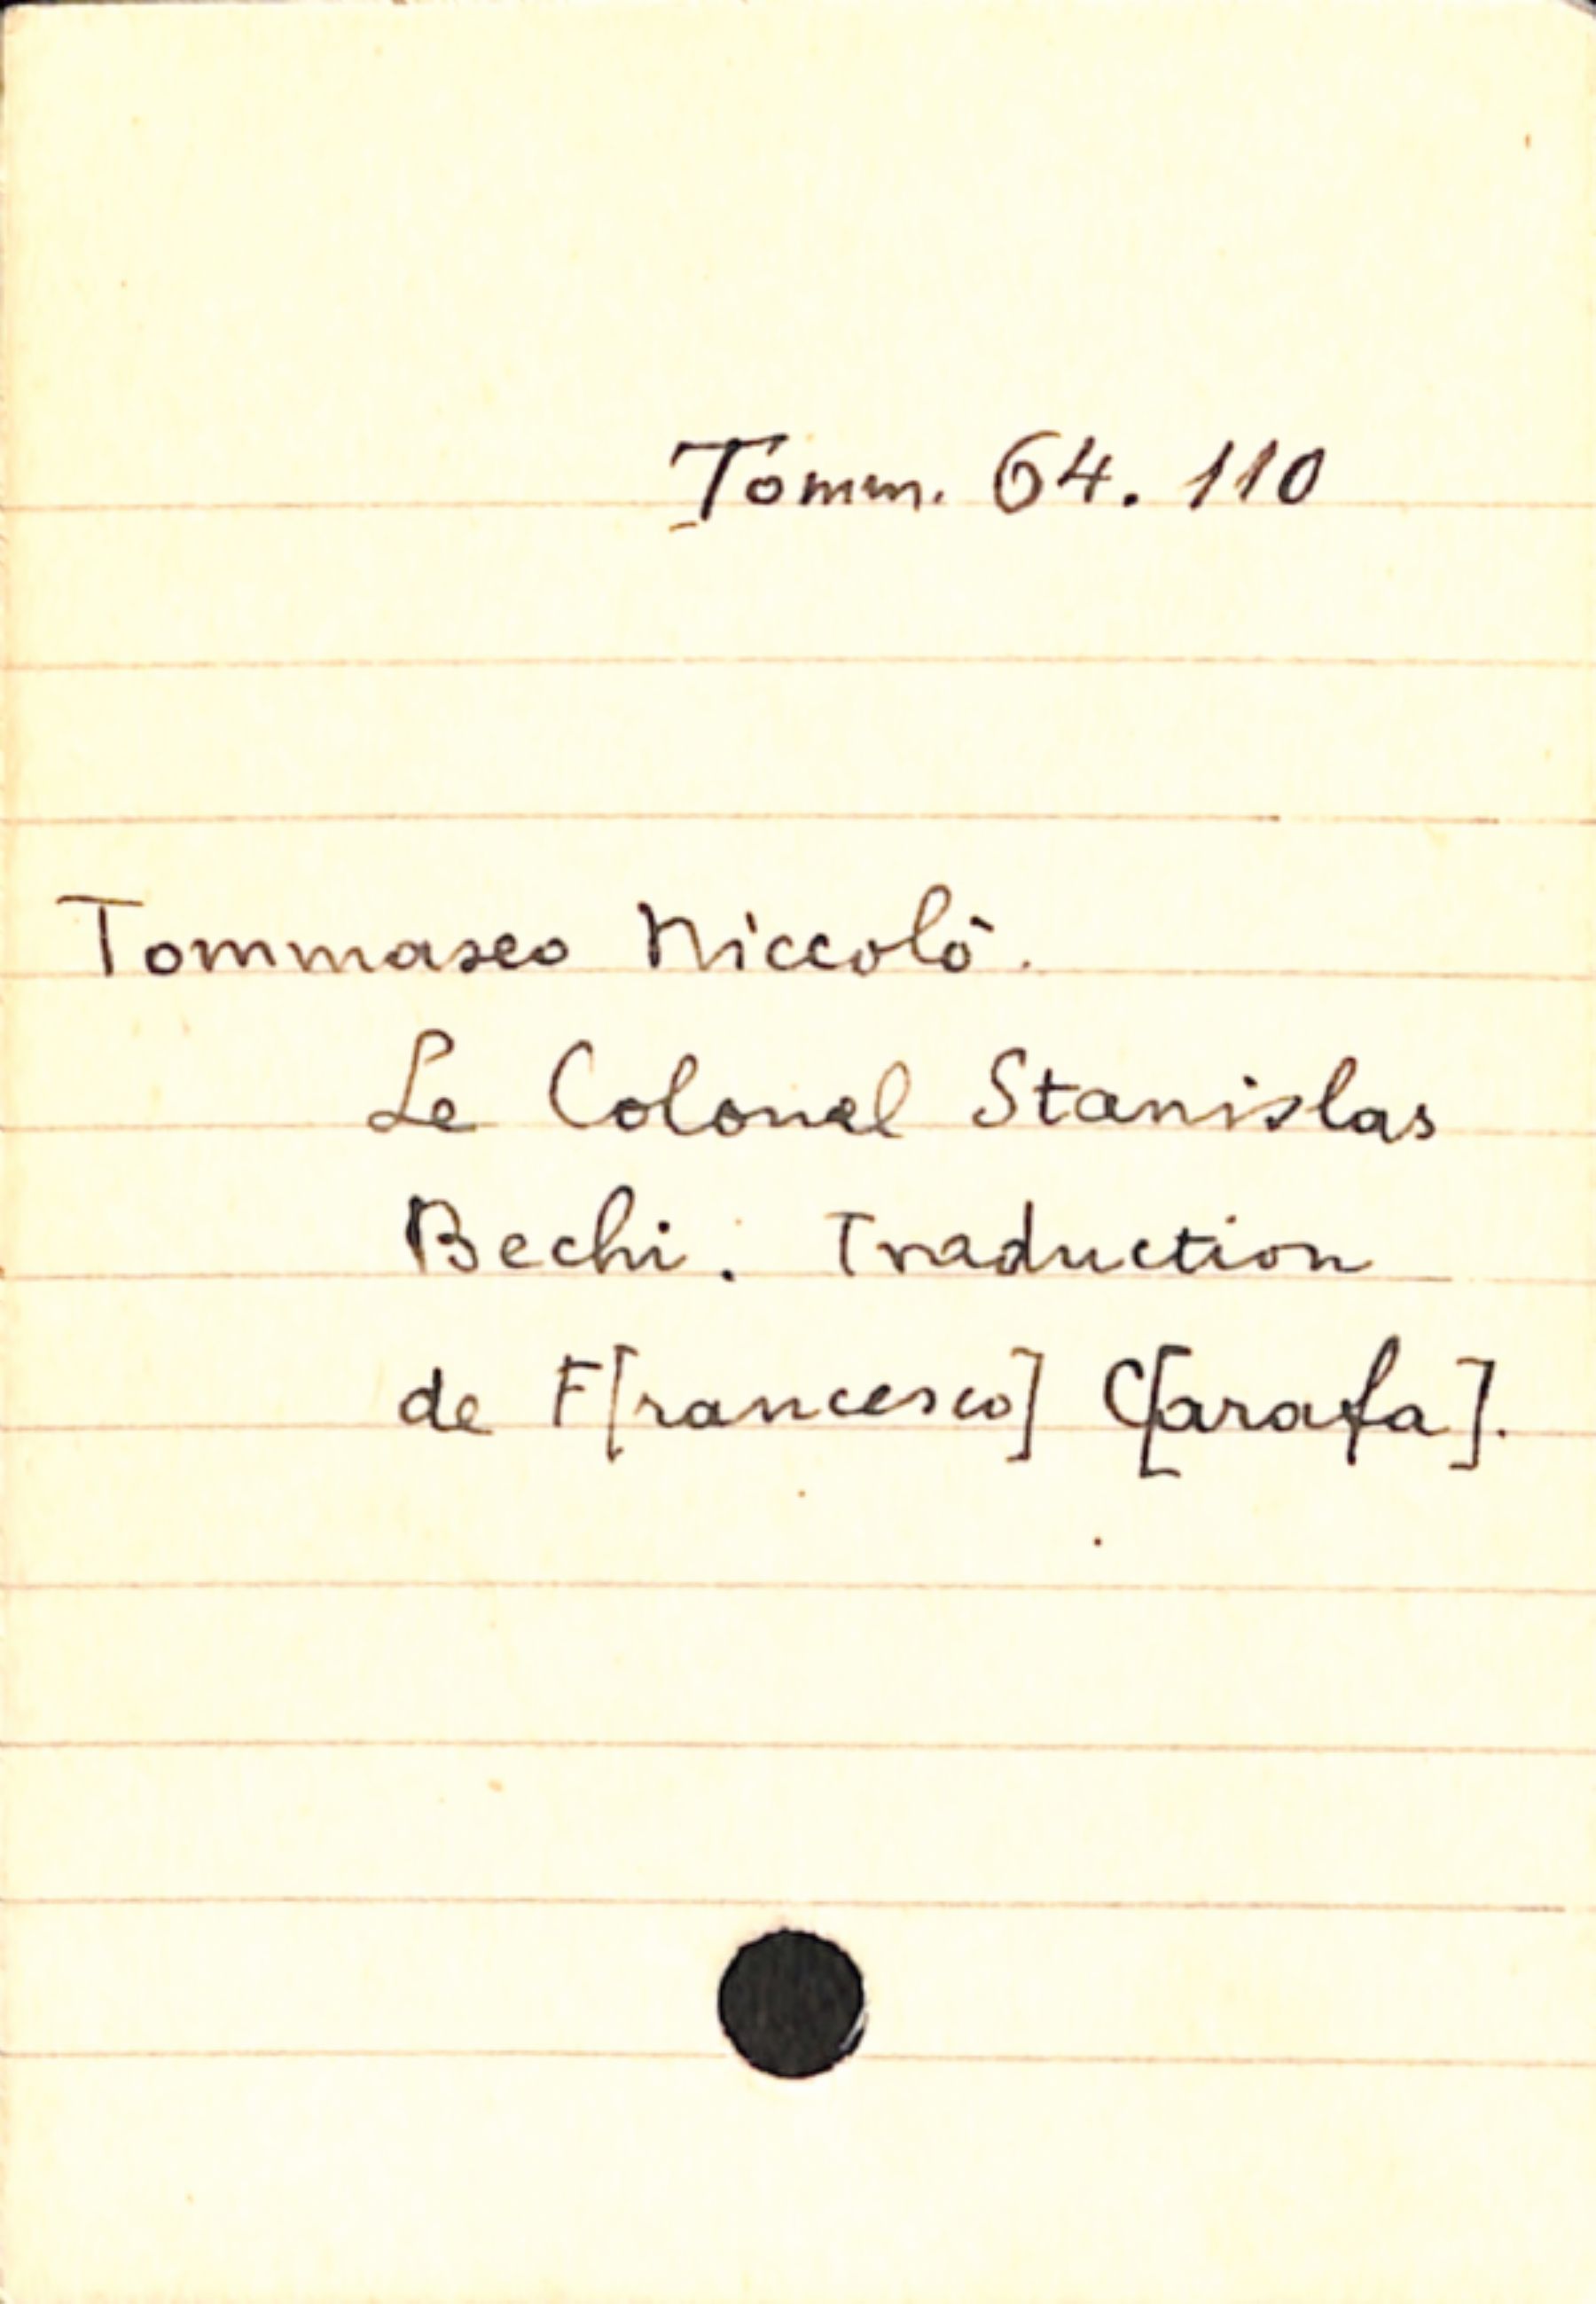 Tomm. 64. 110
Tommaseo Niccolò.
Le Colonel Stanislas
Bechi. Traduction
de F[rancesco] C[arafa].